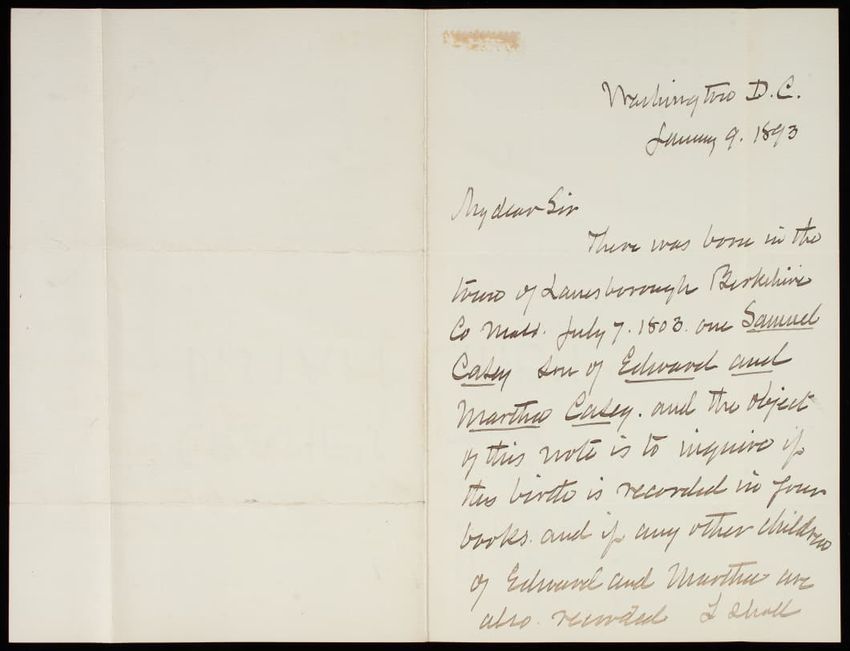 Washington D.C.
January 9. 1893
My dear Sir
There was born in the
town of Lanesborough Berkshire
Co Mass. July 7. 1803. one Samuel
Casey son of Edward and
Martha Casey. and the object
of this note is to inquire if
this birth is recorded in your
books. and if any other children
of Edward and Martha are
also recorded I shall